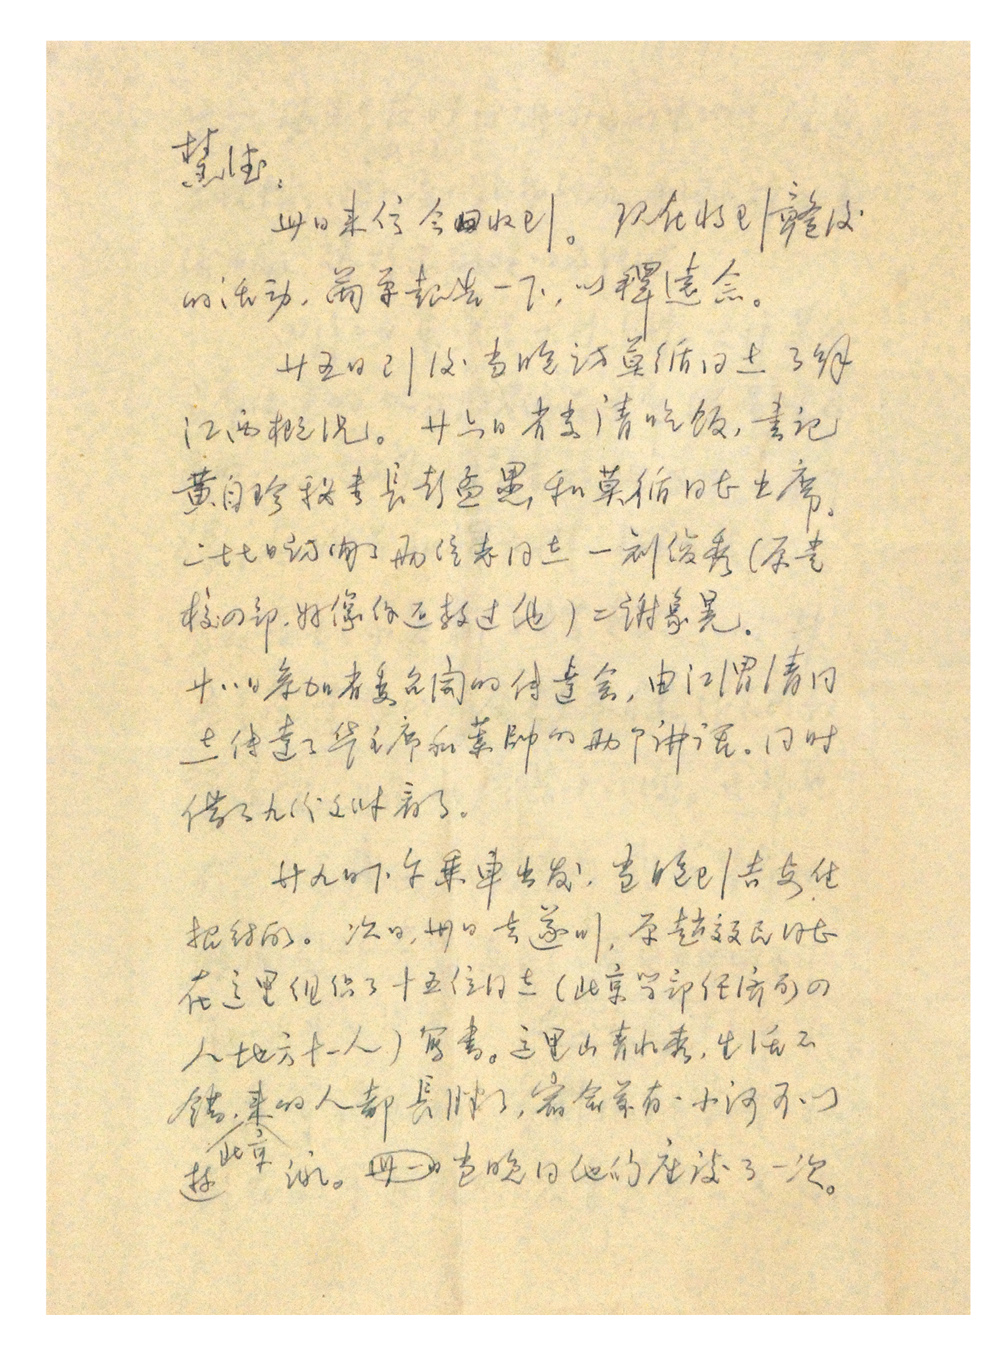 慧德：
卅日来信今日收到。现在将到赣后
的活动，简单报告一下，以释远念。
廿五日到后当晚访莫循同志了解
江西概况。廿六日省委请吃饭，书记
黄自珍秘书长彭孟愚和莫循同志出席。
二十七日访问了两位老同志一刘俊秀（原党
校四部，好像你还教过他）二谢象晃。
廿八日参加省委召开的传达会，由江渭清同
志传达了华主席和叶帅的两个讲话。同时
借了九份文件看了。
廿九日下午乘车出发，当晚到吉安住
招待所。次日，卅日去遂川，原赵效民同志
在这里组织了十五位同志（北京学部经济所四
人地方十一人）写书。这里山青水秀，生活不
错，北京来的人都长胖了，宿舍前有一小河可以
游泳。卅一日当晚同他们座谈了一次。